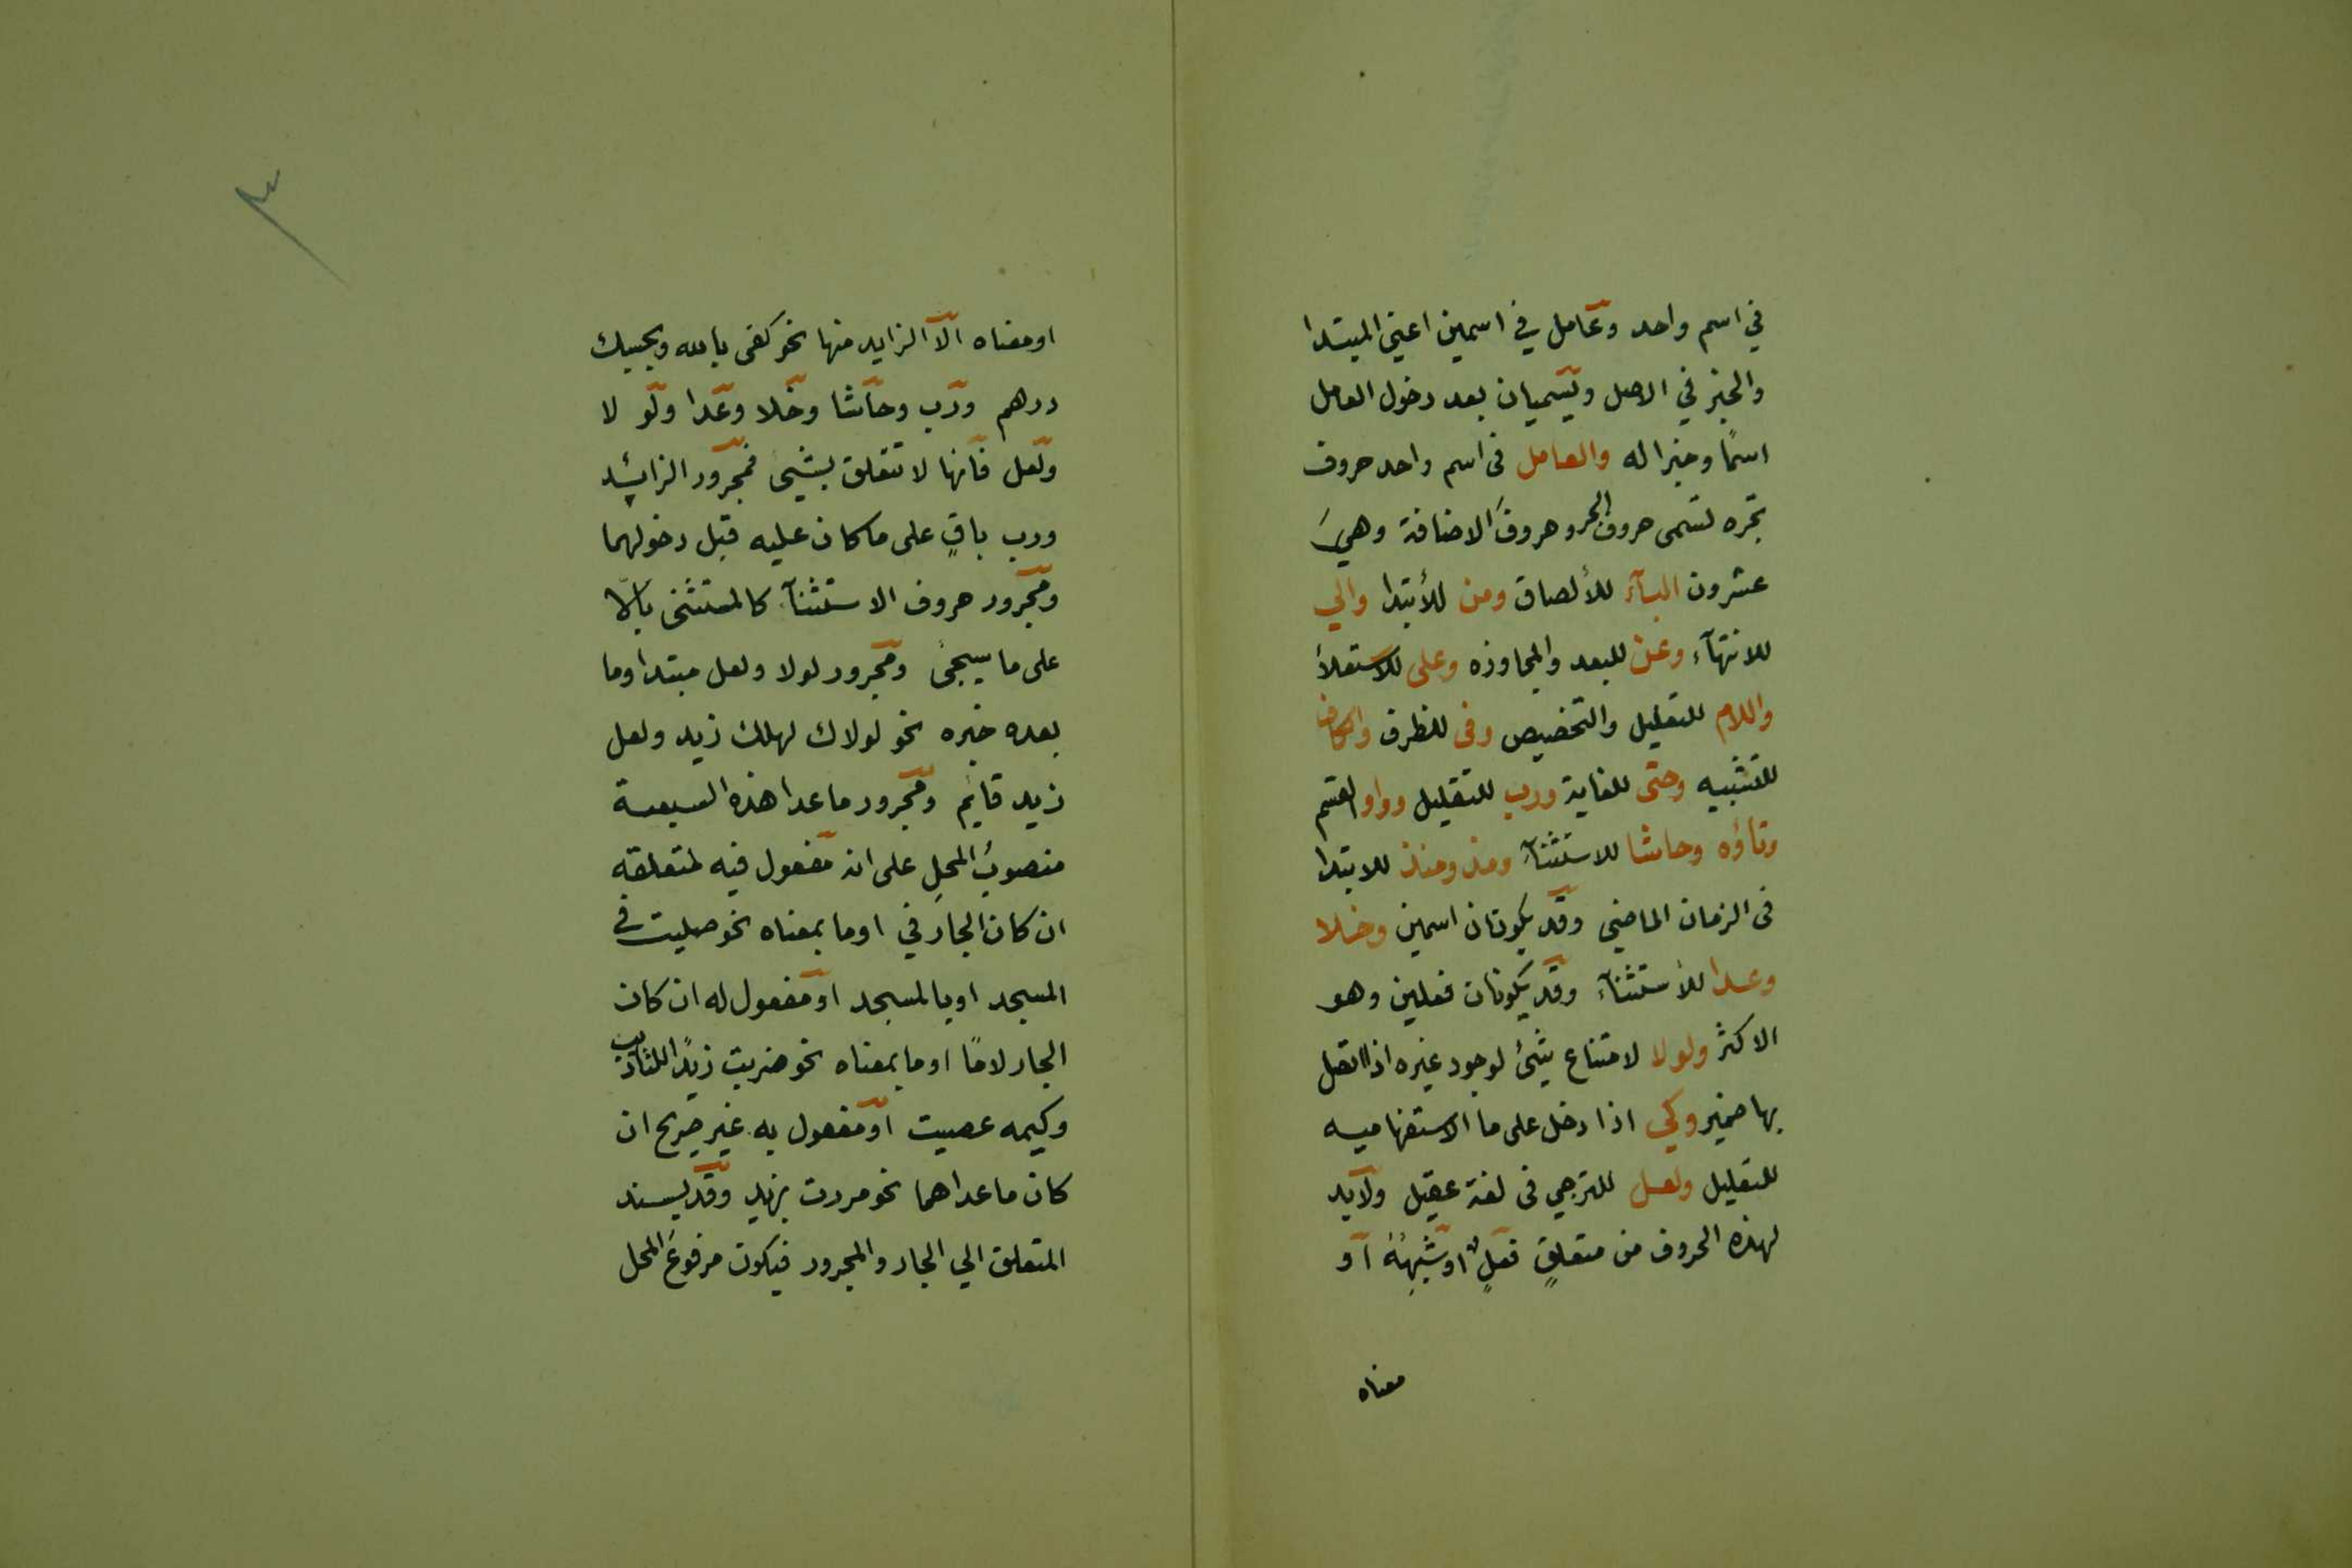 في اسم واحد وعامل في اسمين اعني المبتدا
والخبر في الاصل ويسميان بعد دخول العامل
اسمًا وخبرا له والعامل في اسم واحد حروف
تجره تسمى حروف الجر وحروفَ الاضافة وهيَ
عشرون البآء للألصاق ومن للأبتدا والي
للانتهآء وعن للبعد والمجاوزه وعلى للاستعلأ
واللام للتعليل والتخصيص وفى للظرف والكاف
للتشبيه وحتى للغاية ورب للتقليل وواو القسم
وتاؤه وحاشا للاستثنآء ومذ ومنذ للابتدا
فى الزمان الماضي وقد يكونان اسمين وخلا
وعدا للأستثنآء وقد يكونان فعلين وهو
الاكثر ولولا لامتناع شئ لوجود غيره اذا اتصل
بها ضمير وكي اذا دخل على ما الاستفهاميه
للتعليل ولعل للترجي فى لغة عقيل ولابد
لهذه الحروف من متعلقٍ فعلٍ او شبههٔ او
معناه
او معناه الّا الزايد منها نحو كفى بالله وبحسبك
درهم ورب وحاشا وخلا وعدا ولو لا
ولعل فانها لا تتعلق بشيئ فمجرور الزائد
ورب باقٍ على ما كان عليه قبل دخولهما
ومجرور حروف الاستثنآء كالمستثنى بالّا
على ما سيجئ ومجرور لولا ولعل مبتدا وما
بعده خبره نحو لولاك لهلك زيد ولعل
زيد قائم ومجرور ما عدا هذه السبعة
منصوبُ المحلِ على انه مفعول فيه لمتعلقه
ان كان الجار في او ما بمعناه نحو صليت في
المسجد او بالمسجد او مفعول له ان كان
الجار لامًا او ما بمعناه نحو ضربت زيدًا للتاديب
وكيمه عصيت او مفعول به غير صريح ان
كان ما عداهما نحو مررت بزيد وقد يسند
المتعلق الي الجار والمجرور فيكون مرفوعَ المحل